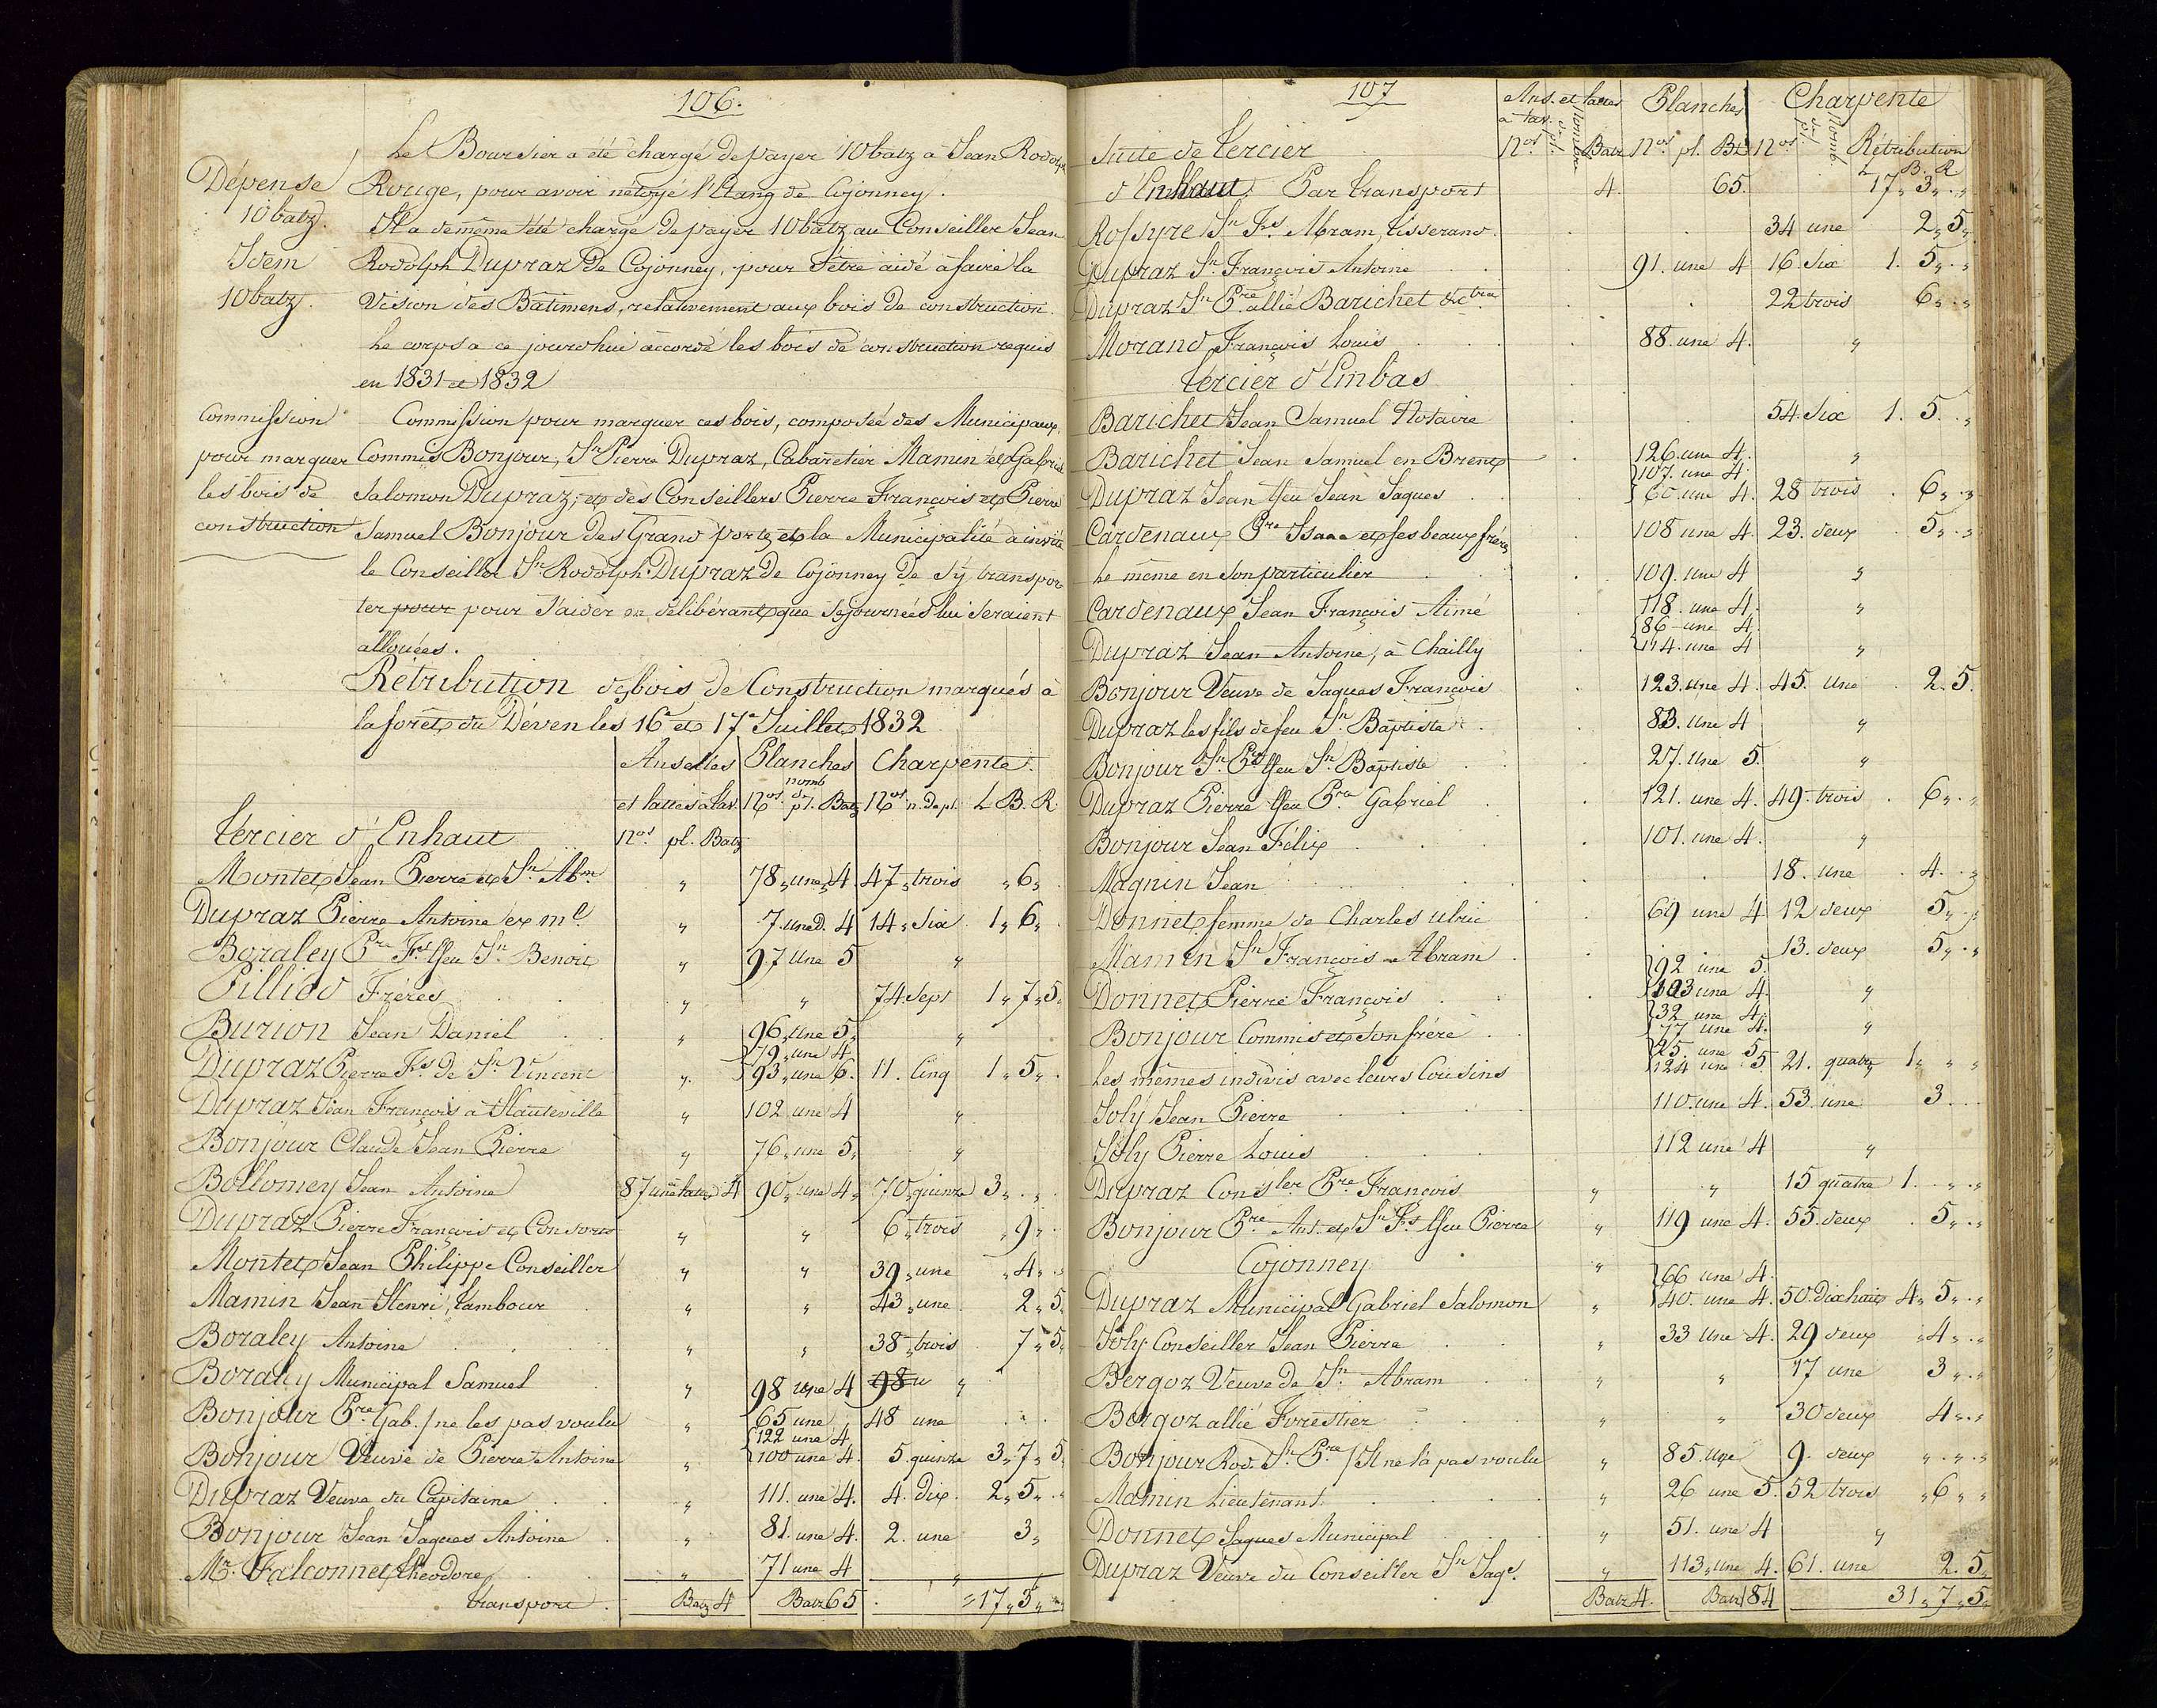 106.
Le Boursier a été chargé de payer 10 batz à Jean Rodolph
Dépense Rouge, pour avoir nétoyé l'Etang de Cojonney.
10 batz. Il a de même été chargé de payer 10 batz au Conseiller Jean
Idem Rodolph Dupraz de Cojonney, pour s'être aidé à faire la
10 batz. Vision des Batimens, relativement aux bois de construction.
Le corps a ce jourd'hui accordé les bois de construction requis
en 1831 et 1832
Commission Commission pour marquer ces bois, composée des Municipaux,
pour marquer Commis Bonjour, Jn Pierre Dupraz, Cabaretier Mamin et Gabriel
les bois de Salomon Dupraz; et des Conseillers Pierre François et Pierre
construction Samuel Bonjour des Grand porte, et la Municipalité a invité
le Conseiller Jn Rodolph Dupraz de Cojonney de s'y transpor
ter pour pour s'aider en délibérant que ses journées lui seraient
allouées.
Rétribution des bois de Construction marqués à
la forêt du Déven les 16e et 17e Juillet 1832
Anselles Planches Charpente.
et lattes à tav. Nos nomb de pl. Batz Nos n. de pl. L B. R.
Tercier d'Enhaut nos pl. Batz
Montet Jean Pierre et Jn Abm „ 78 „ une „ 4. 47 „ trois „ 6 „
Dupraz Pierre Antoine et ml „ 7. une D. 4 14 „ Six 1 „ 6 „
Boraley Pre Fs ffeu Jn Benoit „ 97 Une 5 „
Pilliod Frères „ „ 74. Sept 1 „ 7 „ 5 „
Burion Jean Daniel „ 96 „ Une 5 „ „
79 „ une 4
Dupraz Pierre Fs de Jn Vincent „ 93 „ une 6. 11. Cinq 1 „ 5 „
Dupraz Jean François à Hauteville „ 102 une 4 „
Bonjour Claude Jean Pierre „ 76 „ une 5 „ „
Bollomey Jean Antoine 87 une lattes 4 90 „ une 4 „ 70 „ quinze 3 „ . „
Dupraz Pierre François et Consorts „ „ 6 „ trois „ 9 „
Montet Jean Philippe Conseiller „ „ 39 „ une „ 4 „
Mamin Jean Henri, Tambour „ „ 43 „ une 2 „ 5.
Boraley Antoine „ „ 38 „ trois 7 „ 5
Boraley Municipal Samuel „ 98 une 4 98 u „
Bonjour Pre Gab. / ne les pas voulu „ 65 une „ 48 une
122 une 4
Bonjour Veuve de Pierre Antoine „ 100 une 4. 5. quinze 3 „ 7 „ 5
Dupraz Veuve du Capitaine „ 111. une 4. 4. dix. 2 „ 5 „
Bonjour Jean Jaques Antoine „ 81. une 4. 2. une 3 „
Mr. Falconnet Théodore „ 71 une 4 „
transport Batz 4 Batz 65 = 17 „ 3 „
107
Ans. et lattes Planches Charpente
à tav.
Suite de Tercier Nos Nombre de pl. Batz Nos pl. Bz Nos Nomb. de pl. Rétribution
L B. R
d'Enhaut. Par transport 4. 65. 17 „ 3 „ . „
Rossyre Jn Fs Abram, tisserand 34 une 2 „ 5 „
Dupraz Jn François Antoine 91. une 4 16. Six 1. 5 „ . „
Dupraz Jn Pre allié Barichet 22 trois 6 „ . „
Morand François Louis 88. une 4. „
Tercier d'Embas
Barichet Jean Samuel Notaire 54. Six 1. 5. . „
Barichet Jean Samuel en Brent 126. une 4. „
107. une 4.
Dupraz Jean ffeu Jean Jaques 60. une 4. 28 trois 6 „ . „
Cardenaux Pre Isaac et ses beaux frères 108 une 4. 23. deux 5 „ . „
Le même en son particulier 109. une 4 „
Cardenaux Jean François Aimé 118. une 4. „
86 une 4.
Dupraz Jean Antoine, à Chailly 114. une 4 „
Bonjour Veuve de Jaques François 123. une 4. 45. une 2. 5.
Dupraz les fils de feu Jn Baptiste 83. une 4 „
Bonjour Jn Pre ffeu Jn Baptiste 27. une 5. „
Dupraz Pierre ffeu Pre Gabriel 121. une 4. 49. trois 6 „ . „
Bonjour Jean Félix 101. une 4. „
Magnin Jean 18. une 4. . „
Donnet femme de Charles Ulric 69 une 4 12 deux 5 „ . „
Mamin Jn François Abram 13. deux 5 „ . „
92 une 5.
Donnet Pierre François 103 une 4. „
32 une 4.
Bonjour Commis et son frère 77 une 4. „
25. une 5
Les mêmes indivis avec leurs Cousins 124 une 5 21. quatre 1 „ „ „
Joly Jean Pierre 110. une 4. 53. une 3. . .
Joly Pierre Louis 112 une 4 „
Dupraz Consler Pre François „ „ 15 quatre 1. „ . „
Bonjour Pre Ant. et Jn Fs ffeu Pierre „ 119 une 4. 55. deux 5 „ . „
Cojonney „ 66 une 4.
Dupraz Municipal Gabriel Salomon „ 40. une 4. 50. dix huit 4 „ 5 „ . „
Joly Conseiller Jean Pierre „ 33 Une 4. 29 deux „ 4 „ . „
Bergoz Veuve de Jn Abram „ „ 17 une 3 „ . „
Bergoz allié Forestier „ „ 30 deux 4 „ . „
Bonjour Rod. Jn Pre / Il ne l'a pas voulu „ 85. une 9. deux „ . „ . „
Mamin Lieutenant „ 26 une 5. 52 trois „ 6 „ „
Donnet Jaques Municipal „ 51. une 4 „
Dupraz Veuve du Conseiller Jn Jaqs. „ 113 „ une 4. 61. une 2. 5 „
Batz 4. Batz 184 31 „ 7 „ 5 „